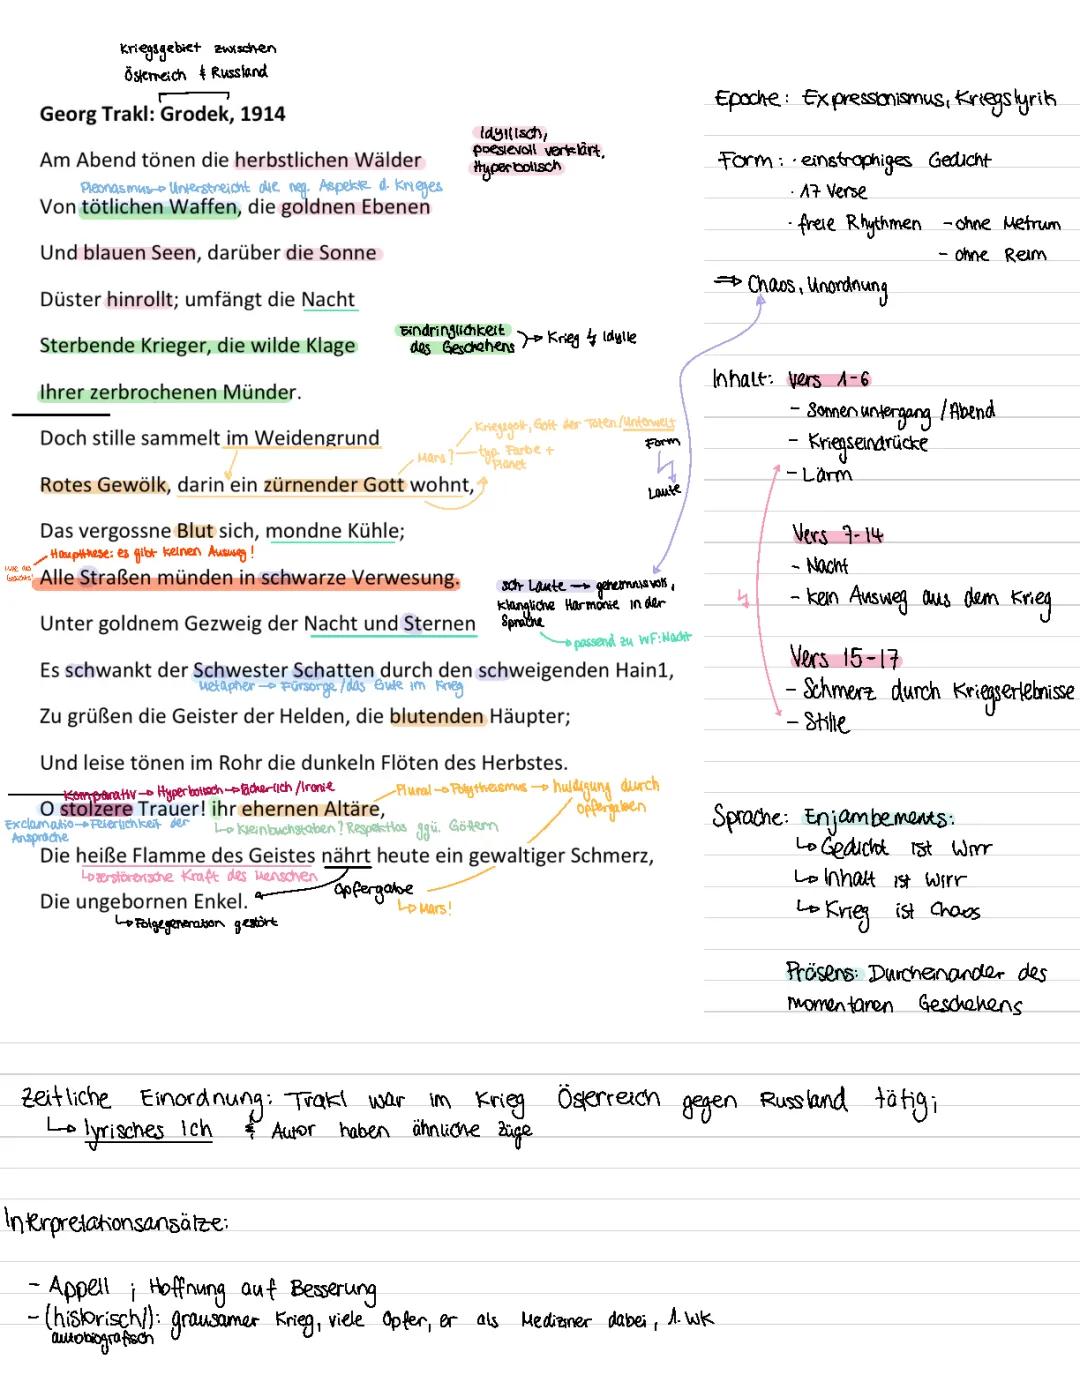 Kriegsgebiet zwischen
Österreich & Russland
Georg Trakl: Grodek, 1914
Am Abend tönen die herbstlichen Wälder
Idyllisch,
poesievoll verklärt,
Hyperbolisch
Pleonasmus → Unterstreicht die neg. Aspekte d. Krieges
Von tötlichen Waffen, die goldnen Ebenen
Und blauen Seen, darüber die Sonne
Düster hinrollt; umfängt die Nacht
Sterbende Krieger, die wilde Klage
Eindringlichkeit
des Geschehens → Krieg ↯ Idylle
Ihrer zerbrochenen Münder.
Doch stille sammelt im Weidengrund
Mars?
Kriegsgott, Gott der Toten/Unterwelt
typ. Farbe +
Planet
Rotes Gewölk, darin ein zürnender Gott wohnt,
Form
↯
Laute
Das vergossne Blut sich, mondne Kühle;
Hauptthese: es gibt keinen Ausweg!
Alle Straßen münden in schwarze Verwesung.
sch Laute → geheimnisvoll,
klangliche Harmonie in der
Sprache
→ passend zu WF: Nacht
Unter goldnem Gezweig der Nacht und Sternen
Es schwankt der Schwester Schatten durch den schweigenden Hain1,
Metapher → Fürsorge/das Gute im Krieg
Zu grüßen die Geister der Helden, die blutenden Häupter;
Und leise tönen im Rohr die dunkeln Flöten des Herbstes.
Komparativ → Hyperbolisch → lächerlich/Ironie
Plural → Polytheismus → huldigung durch
Opfergaben
O stolzere Trauer! ihr ehernen Altäre,
Exclamatio → Feierlichkeit der
Ansprache
↳ Kleinbuchstaben? Respektlos ggü. Göttern
Die heiße Flamme des Geistes nährt heute ein gewaltiger Schmerz,
↳ zerstörerische Kraft des Menschen
Opfergabe
↳ Mars!
Die ungebornen Enkel.
↳ Folgegeneration gestört
Epoche: Expressionismus, Kriegslyrik
Form: · einstrophiges Gedicht
· 17 Verse
· freie Rhythmen - ohne Metrum
- ohne Reim
⇒ Chaos, Unordnung
Inhalt: Vers 1-6
- Sonnenuntergang / Abend
- Kriegseindrücke
- Lärm
Vers 7-14
- Nacht
↯
- kein Ausweg aus dem Krieg
Vers 15-17
- Schmerz durch Kriegserlebnisse
- Stille
Sprache: Enjambements:
↳ Gedicht ist wirr
↳ Inhalt ist wirr
↳ Krieg ist Chaos
Präsens: Durcheinander des
momentanen Geschehens
Zeitliche Einordnung: Trakl war im Krieg Österreich gegen Russland tätig;
↳ lyrisches Ich & Autor haben ähnliche Züge
Interpretationsansätze:
- Appell ; Hoffnung auf Besserung
- (historisch/): grausamer Krieg, viele Opfer, er als Mediziner dabei, 1. WK
autobiografisch